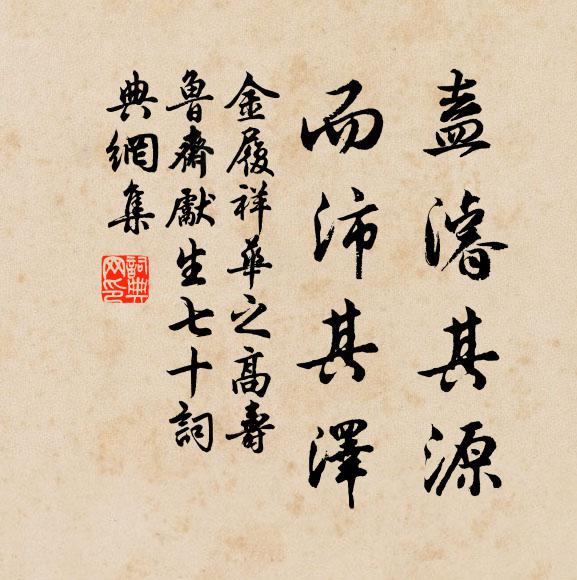 盍濬其源
而沛其澤
金履祥華之高壽
魯齋獻生七十詞
典網集
詞典網印